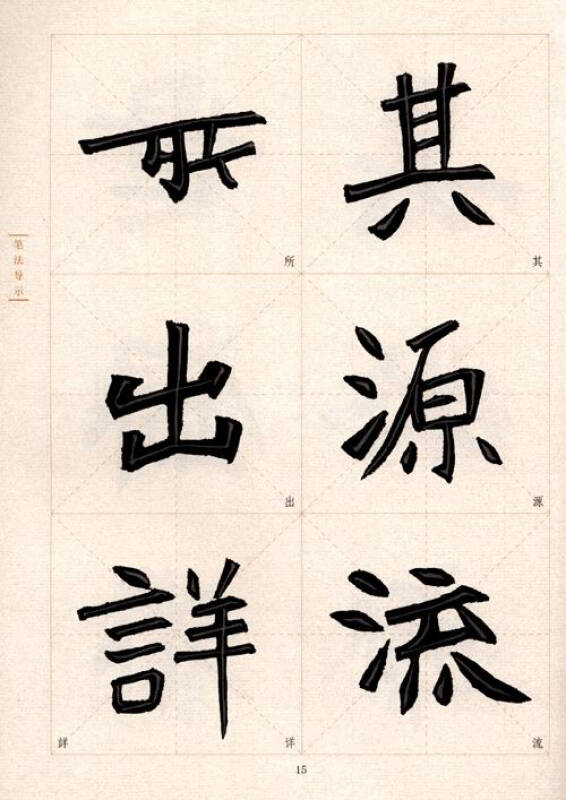 笔法导示
其
其
源
源
流
流
所
所
出
出
詳
詳 详
15